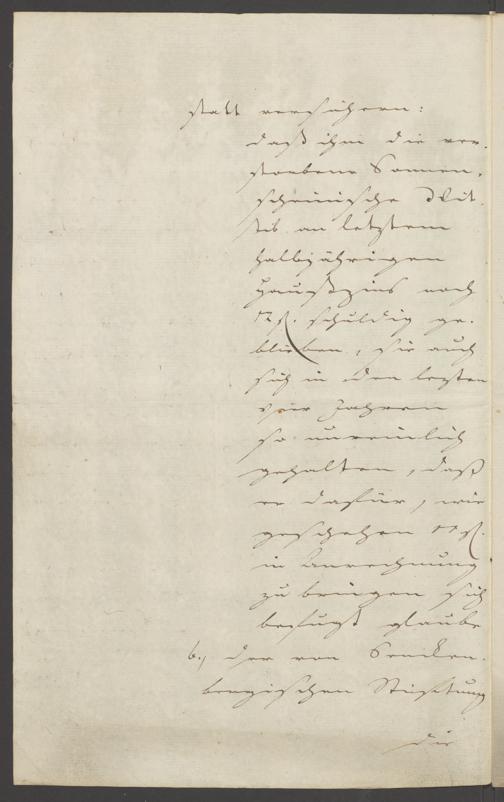 statt versichern:
daß ihm die ver-
storbene Sonnen-
scheinische Wit-
tib an letztem
halbjährigen
Haußzins noch
12 f. schuldig ge-
blieben, sie auch
sich in den letzten
vier Jahren
so unreinlich
gehalten, daß
er dafür, wie
geschehen 11 f.
in Anrechnung
zu bringen sich
befugt glaube
6.) der von Sencken-
bergischen Stiftung
die